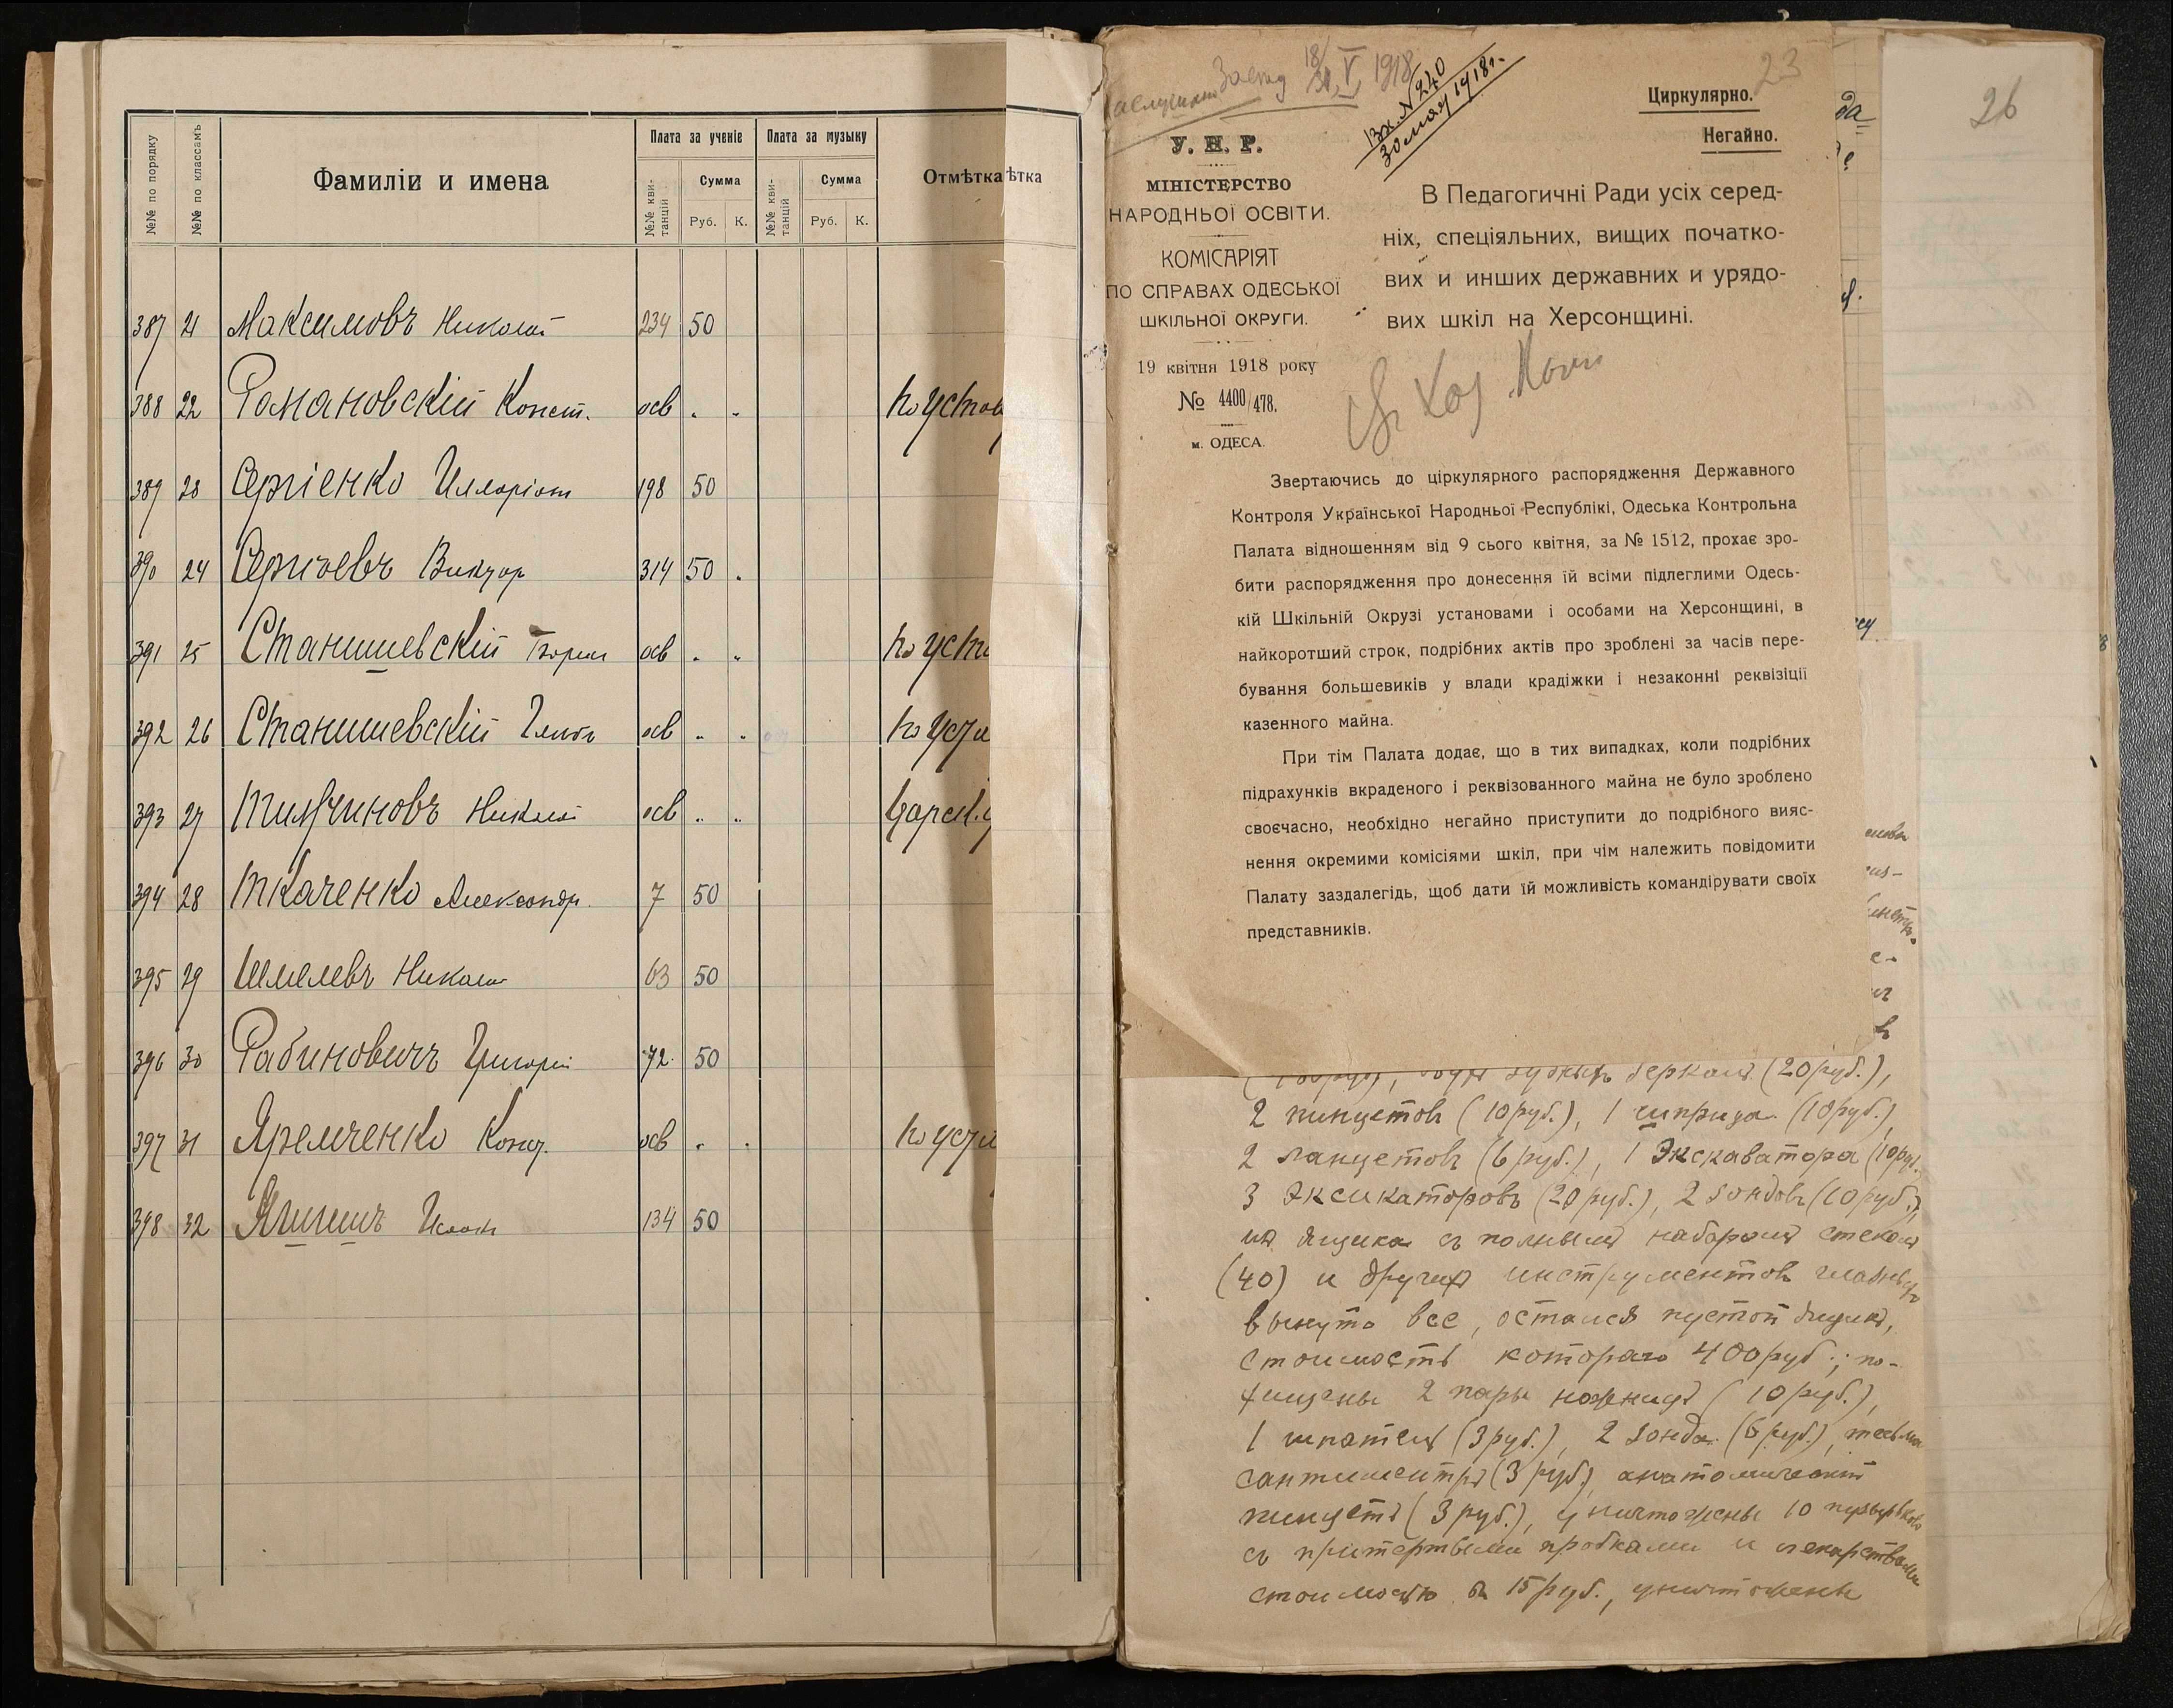 №№ по порядку
№№ по классамъ
Фамиліи и имена
Плата за ученіе
Плата за музыку
№№ кви-
танцій
Сумма
Руб. К.
№№ кви-
танцій
Сумма
Руб. К.
Отмѣтка
ѣтка
387 21 Максимовъ Николай 234 50
388 22 Романовскій Конст. осв По устав
389 23 Сергіенко Илларіон 198 50
390 24 Сергѣевъ Виктор 314 50
391 25 Станишевскій осв По уста
392 26 Станишевскій Глѣбъ осв По уста
393 27 Николай осв
394 28 Ткаченко Александр. 7 50
395 29 Шмелевъ Николай 63 50
396 30 Рабиновичъ Григорій 72 50
397 31 Яремченко Конд. осв По уста
398 32 134 50
23
26
18/31 V 1918
Вх. № 240
30 мая 1918 г.
Циркулярно.
Негайно.
У. Н. Р.
МІНІСТЕРСТВО
НАРОДНЬОЇ ОСВІТИ.
КОМІСАРІЯТ
ПО СПРАВАХ ОДЕСЬКОЇ
ШКІЛЬНОЇ ОКРУГИ.
19 квітня 1918 року
№ 4400/478.
м. ОДЕСА.
В Педагогичні Ради усіх серед-
ніх, спеціяльних, вищих початко-
вих и инших державних и урядо-
вих шкіл на Херсонщині.
Звертаючись до ціркулярного распорядження Державного
Контроля Української Народньої Республікі, Одеська Контрольна
Палата відношенням від 9 сього квітня, за № 1512, прохає зро-
бити распорядження про донесення їй всіми підлеглими Одесь-
кій Шкільній Окрузі установами і особами на Херсонщині, в
найкоротший строк, подрібних актів про зроблені за часів пере-
бування большевиків у влади крадіжки і незаконні реквізіції
казенного майна.
При тім Палата додає, що в тих випадках, коли подрібних
підрахунків вкраденого і реквізованного майна не було зроблено
своєчасно, необхідно негайно приступити до подрібного вияс-
нення окремими комісіями шкіл, при чім належить повідомити
Палату заздалегідь, щоб дати їй можливість командірувати своїх
представників.
зеркала (20 руб.),
2 пинцетовъ (10 руб.), 1 шприца (10 руб.),
2 ланцетовъ (6 руб.), 1 Экскаватора (10 руб.
3 Эксикаторовъ (20 руб.), 2 зондовъ (10 руб.),
из ящика съ полнымъ наборомъ стекол
(40) и другихъ инструментовъ глазныхъ
вынуто все, остался пустой ящикъ,
стоимость котораго 400 руб.; по-
хищены 2 пары ножницъ (10 руб.),
1 шпатель (3 руб.), 2 зонда (6 руб.), тесьма
сантиметръ (3 руб.), анатомическій
пинцетъ (3 руб.), уничтожены 10 пузырьковъ
съ притертыми пробками и лекарствами
стоимостью в 15 руб., уничтожены